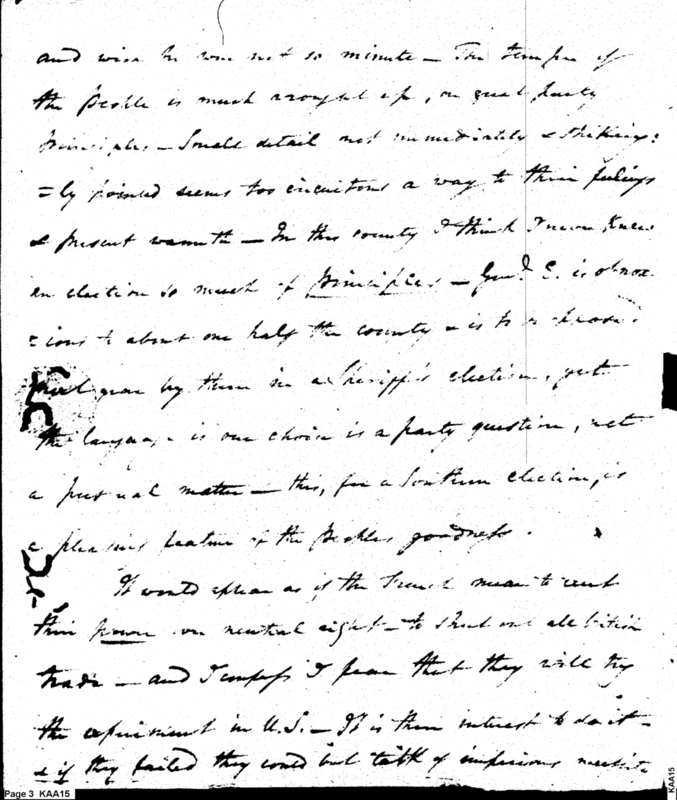 and wish he was not so minute — The temper of
the people is much wrought up, on great party
principles — Small detail not immediately & striking=
=ly pointed seems too circuitous a way to their feelings
& present warmth — In this county I think I never knew
an election so much of principles — Genl. E. is obnox-
=ious to about one half the county & is to
year by them in a Sheriff's election, yet
the language is our choice is a party question, not
a personal matter — this, for a Southern election, is
a pleasing feature of the peoples goodness.
It would appear as if the French mean to vent
their power on neutral right — to shut out all british
trade — and I confess I fear that they will try
the experiment in U.S. — It is their interest to do it —
& if they failed they could but talk of imperious necessity
Page 3 KAA15
KAA15